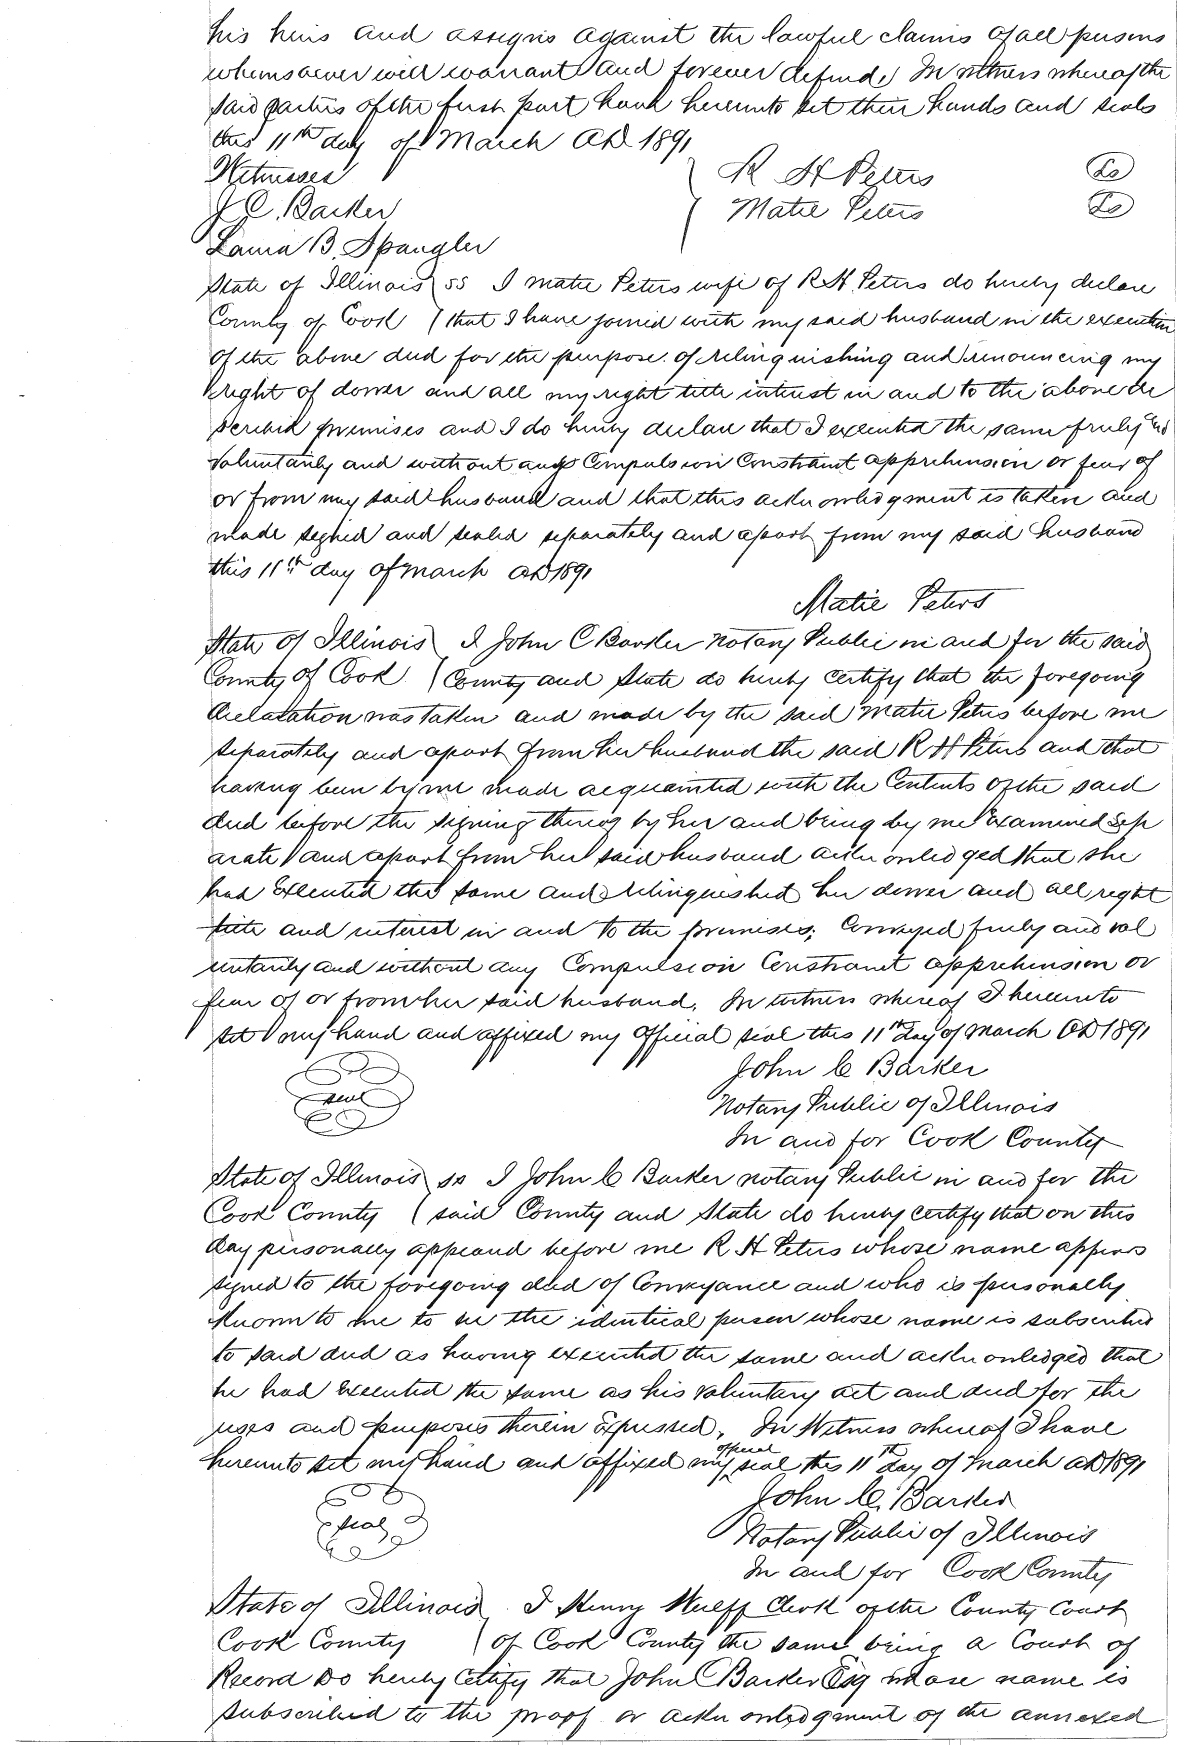 his heirs and assigns against the lawful claims of all persons
whomsoever will warrant and forever defend. In witness whereof the
said parties of the first part have hereunto set their hands and seals
this 11th day of March AD 1891
Witnesses R H Peters Ls
J C. Barker Matie Peters Ls
Laura B. Spangler
State of Illinois ss I Matie Peters wife of R H Peters do hereby declare
County of Cook that I have joined with my said husband in the execution
of the above deed for the purpose of relinquishing and renouncing my
right of dower and all my right title interest in and to the above de
scribed premises and I do hereby declare that I executed the same freely and
voluntarily and without any Compulsion Constraint apprehension or fear of
or from my said husband and that this acknowledgment is taken and
made signed and sealed separately and apart from my said husband
this 11th day of March AD 1891
Matie Peters
State of Illinois I John C Barker Notary Public in and for the said
County of Cook County and State do hereby certify that the foregoing
declaration was taken and made by the said Matie Peters before me
separately and apart from her husband the said R H Peters and that
having been by me made acquainted with the Contents of the said
deed before the signing thereof by her and being by me examined sep
arate and apart from her said husband acknowledged that she
had executed the same and relinquished her dower and all right
title and interest in and to the premises; Conveyed freely and vol
untarily and without any Compulsion Constraint apprehension or
fear of or from her said husband. In witness whereof I hereunto
set my hand and affixed my official seal this 11th day of March AD 1891
John C Barker
seal Notary Public of Illinois
In and for Cook County
State of Illinois ss I John C Barker notary Public in and for the
Cook County said County and State do hereby certify that on this
day personally appeared before me R H Peters whose name appears
signed to the foregoing deed of Conveyance and who is personally
known to me to be the identical person whose name is subscribed
to said deed as having executed the same and acknowledged that
he had executed the same as his voluntary act and deed for the
uses and purposes therein expressed. In Witness whereof I have
hereunto set my hand and affixed my official seal this 11th day of March AD 1891
John C. Barker
seal Notary Public of Illinois
In and for Cook County
State of Illinois I Henry Wulff Clerk of the County Court
Cook County of Cook County the same being a Court of
Record Do hereby Certify that John C Barker Esq whose name is
subscribed to the proof or acknowledgment of the annexed